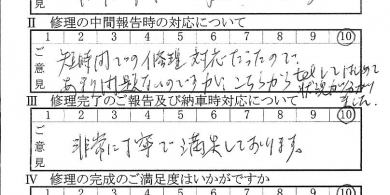 II 修理の中間報告時の対応について
1 2 3 4 5 6 7 8 9 10
ご意見
短時間での修理対応だったので、
あまり問題ないのですが、こちらからtelしてはじめて
状況が分かりました。
III 修理完了のご報告及び納車時対応について
1 2 3 4 5 6 7 8 9 10
ご意見
非常に丁寧で満足しております。
IV 修理の完成のご満足度はいかがですか
1 2 3 4 5 6 7 8 9 10